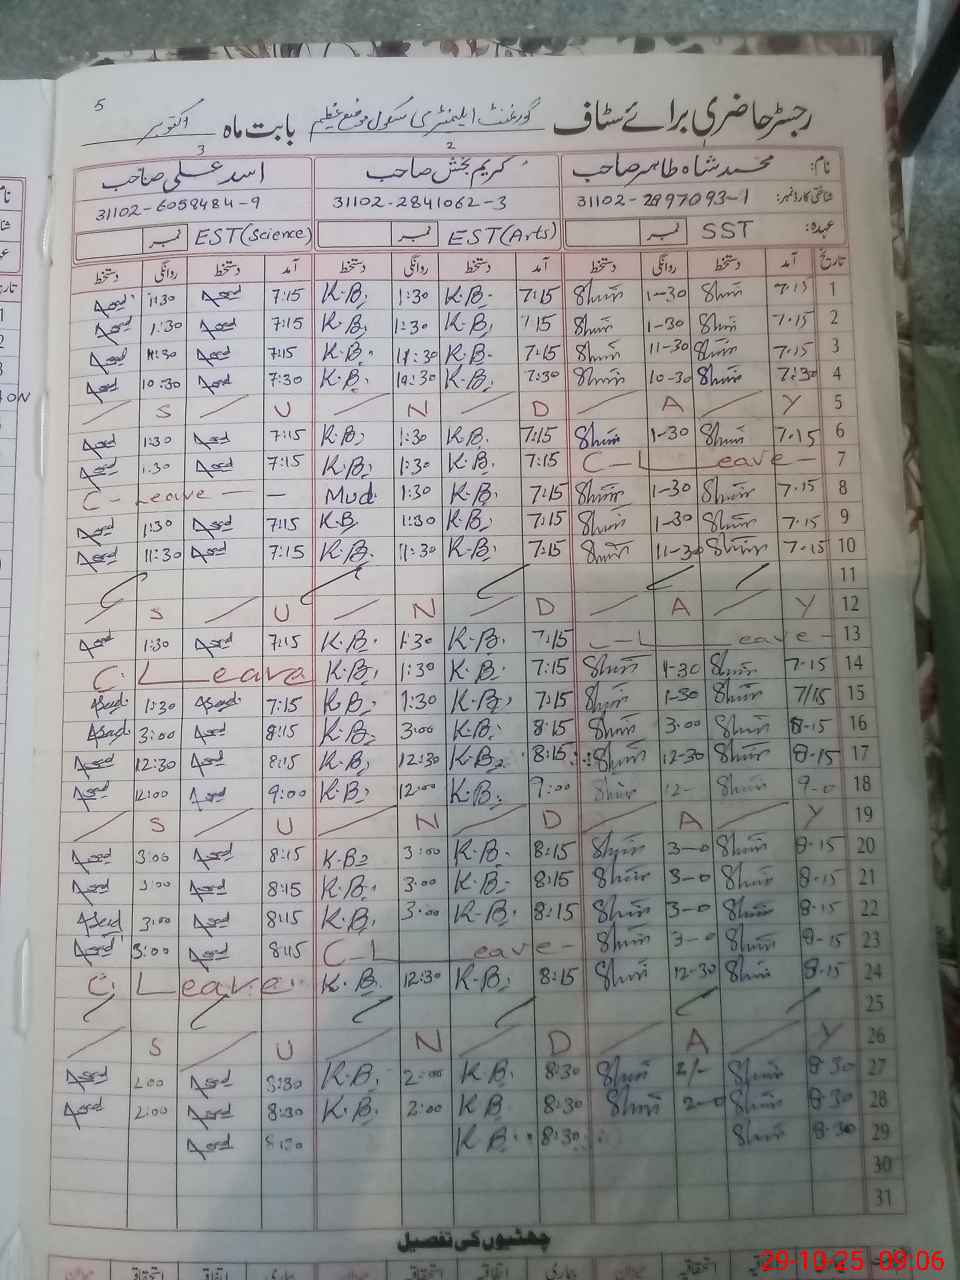 5
رجسٹر حاضری برائے سٹاف گورنمنٹ ایلیمنٹری سکول موضع عظیم بابت ماہ اکتوبر
1 2 3
نام: محمد شاہ طاہر صاحب کریم بخش صاحب اسد علی صاحب
شناختی کارڈ نمبر: 31102-2997093-1 31102-2841062-3 31102-6058484-9
عہدہ: SST نمبر EST(Arts) نمبر EST(Science) نمبر
تاریخ آمد دستخط روانگی دستخط آمد دستخط روانگی دستخط آمد دستخط روانگی دستخط
1 7.15 1-30 7:15 K.B. 1:30 K.B. 7:15 Asad 1:30 Asad
2 7.15 1-30 7:15 K.B. 1:30 K.B. 7:15 Asad 1:30 Asad
3 7.15 11-30 7:15 K.B. 11:30 K.B. 7:15 Asad 11:30 Asad
4 7:30 10-30 7:30 K.B. 10:30 K.B. 7:30 Asad 10:30 Asad
5 S U N D A Y
6 7.15 1-30 7:15 K.B. 1:30 K.B. 7:15 Asad 1:30 Asad
7 C-Leave- 7:15 K.B. 1:30 K.B. 7:15 Asad 1:30 Asad
8 7.15 1-30 7:15 K.B. 1:30 Mud. C-Leave-
9 7.15 1-30 7:15 K.B. 1:30 K.B 7:15 Asad 1:30 Asad
10 7.15 11-30 7:15 K.B. 11:30 K.B. 7:15 Asad 11:30 Asad
11
12 S U N D A Y
13 C-Leave- 7:15 K.B. 1:30 K.B. 7:15 Asad 1:30 Asad
14 7.15 1-30 7:15 K.B. 1:30 K.B. C.Leave
15 7/15 1-30 7:15 K.B. 1:30 K.B. 7:15 Asad 1:30 Asad
16 8-15 3.00 8:15 K.B. 3:00 K.B. 8:15 Asad 3:00 Asad
17 8.15 12-30 8:15 K.B. 12:30 K.B. 8:15 Asad 12:30 Asad
18 9-0 12- 9:00 K.B. 12:00 K.B. 9:00 Asad 12:00 Asad
19 S U N D A Y
20 8.15 3-0 8:15 K.B. 3:00 K.B. 8:15 Asad 3:00 Asad
21 8.15 3-0 8:15 K.B. 3:00 K.B. 8:15 Asad 3:00 Asad
22 8.15 3-0 8:15 K.B. 3:00 K.B. 8:15 Asad 3:00 Asad
23 8-15 3-0 C-Leave- 8:15 Asad 3:00 Asad
24 8.15 12-30 8:15 K.B. 12:30 K.B. C.Leave
25
26 S U N D A Y
27 8.30 2/- 8:30 K.B. 2:00 K.B. 8:30 Asad 2:00 Asad
28 8.30 2-0 8:30 K.B 2:00 K.B. 8:30 Asad 2:00 Asad
29 8.30 8:30 K.B. 8:30 Asad
30
31
چھٹیوں کی تفصیل
29-10-25 09:06